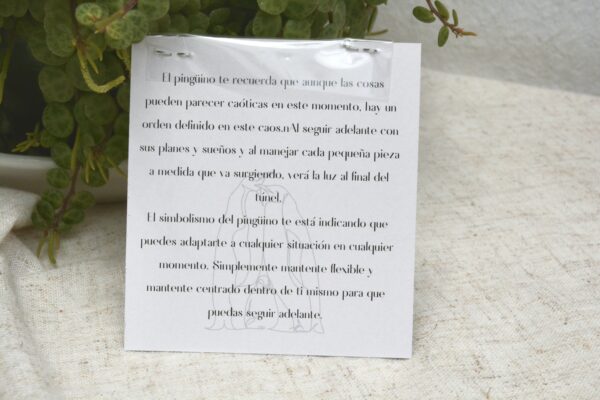 El pingüino te recuerda que aunque las cosas
pueden parecer caóticas en este momento, hay un
orden definido en este caos.nAl seguir adelante con
sus planes y sueños y al manejar cada pequeña pieza
a medida que va surgiendo, verá la luz al final del
túnel.
El simbolismo del pingüino te está indicando que
puedes adaptarte a cualquier situación en cualquier
momento. Simplemente mantente flexible y
mantente centrado dentro de ti mismo para que
puedas seguir adelante.